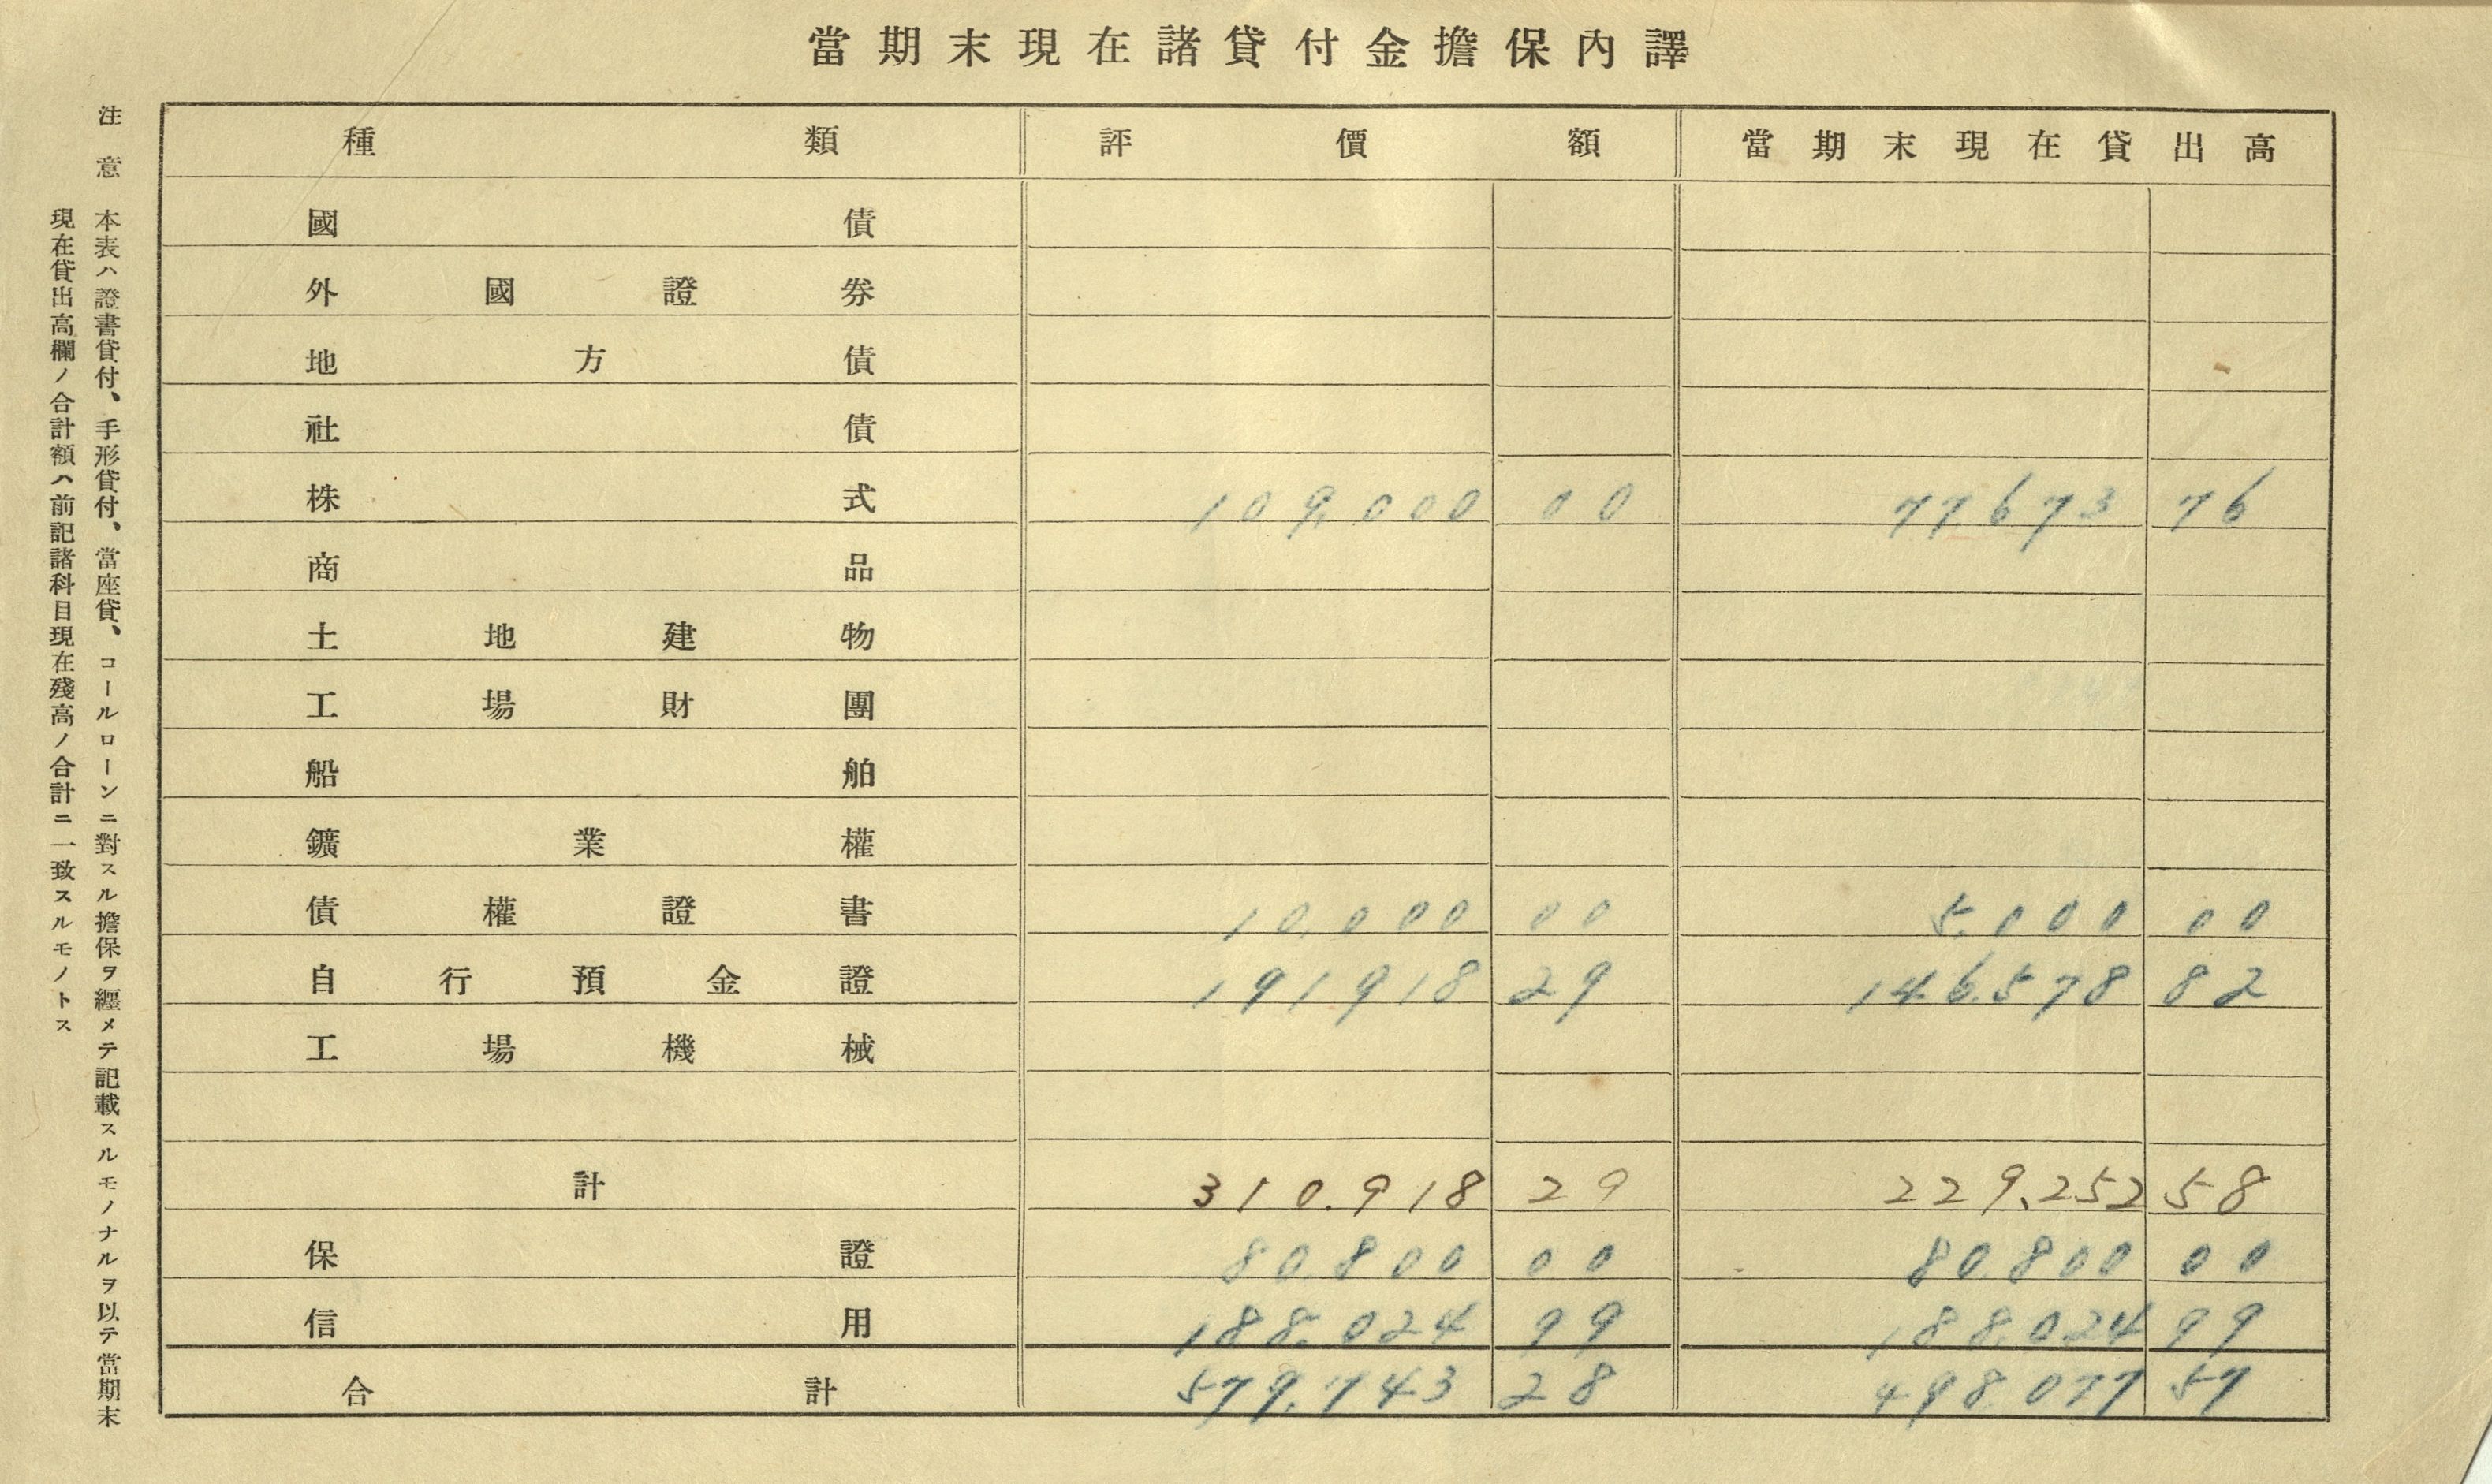 當期末現在諸貸付金擔保內譯
種類 評價額 當期末現在貸出高
國債
外國證券
地方債
社債
株式 109,000 00 77,673 76
商品
土地建物
工場財團
船舶
鑛業權
債權證書 10,000 00 5,000 00
自行預金證 191918 29 146,578 82
工場機械
計 310.918 29 229,252 58
保證 80,800 00 80,800 00
信用 188,024 99 188,024 99
合計 579,743 28 498077 57
注意 本表ハ證書貸付、手形貸付、當座貸、コールローンニ對スル擔保ヲ纒メテ記載スルモノナルヲ以テ當期末
現在貸出高欄ノ合計額ハ前記諸科目現在殘高ノ合計ニ一致スルモノトス